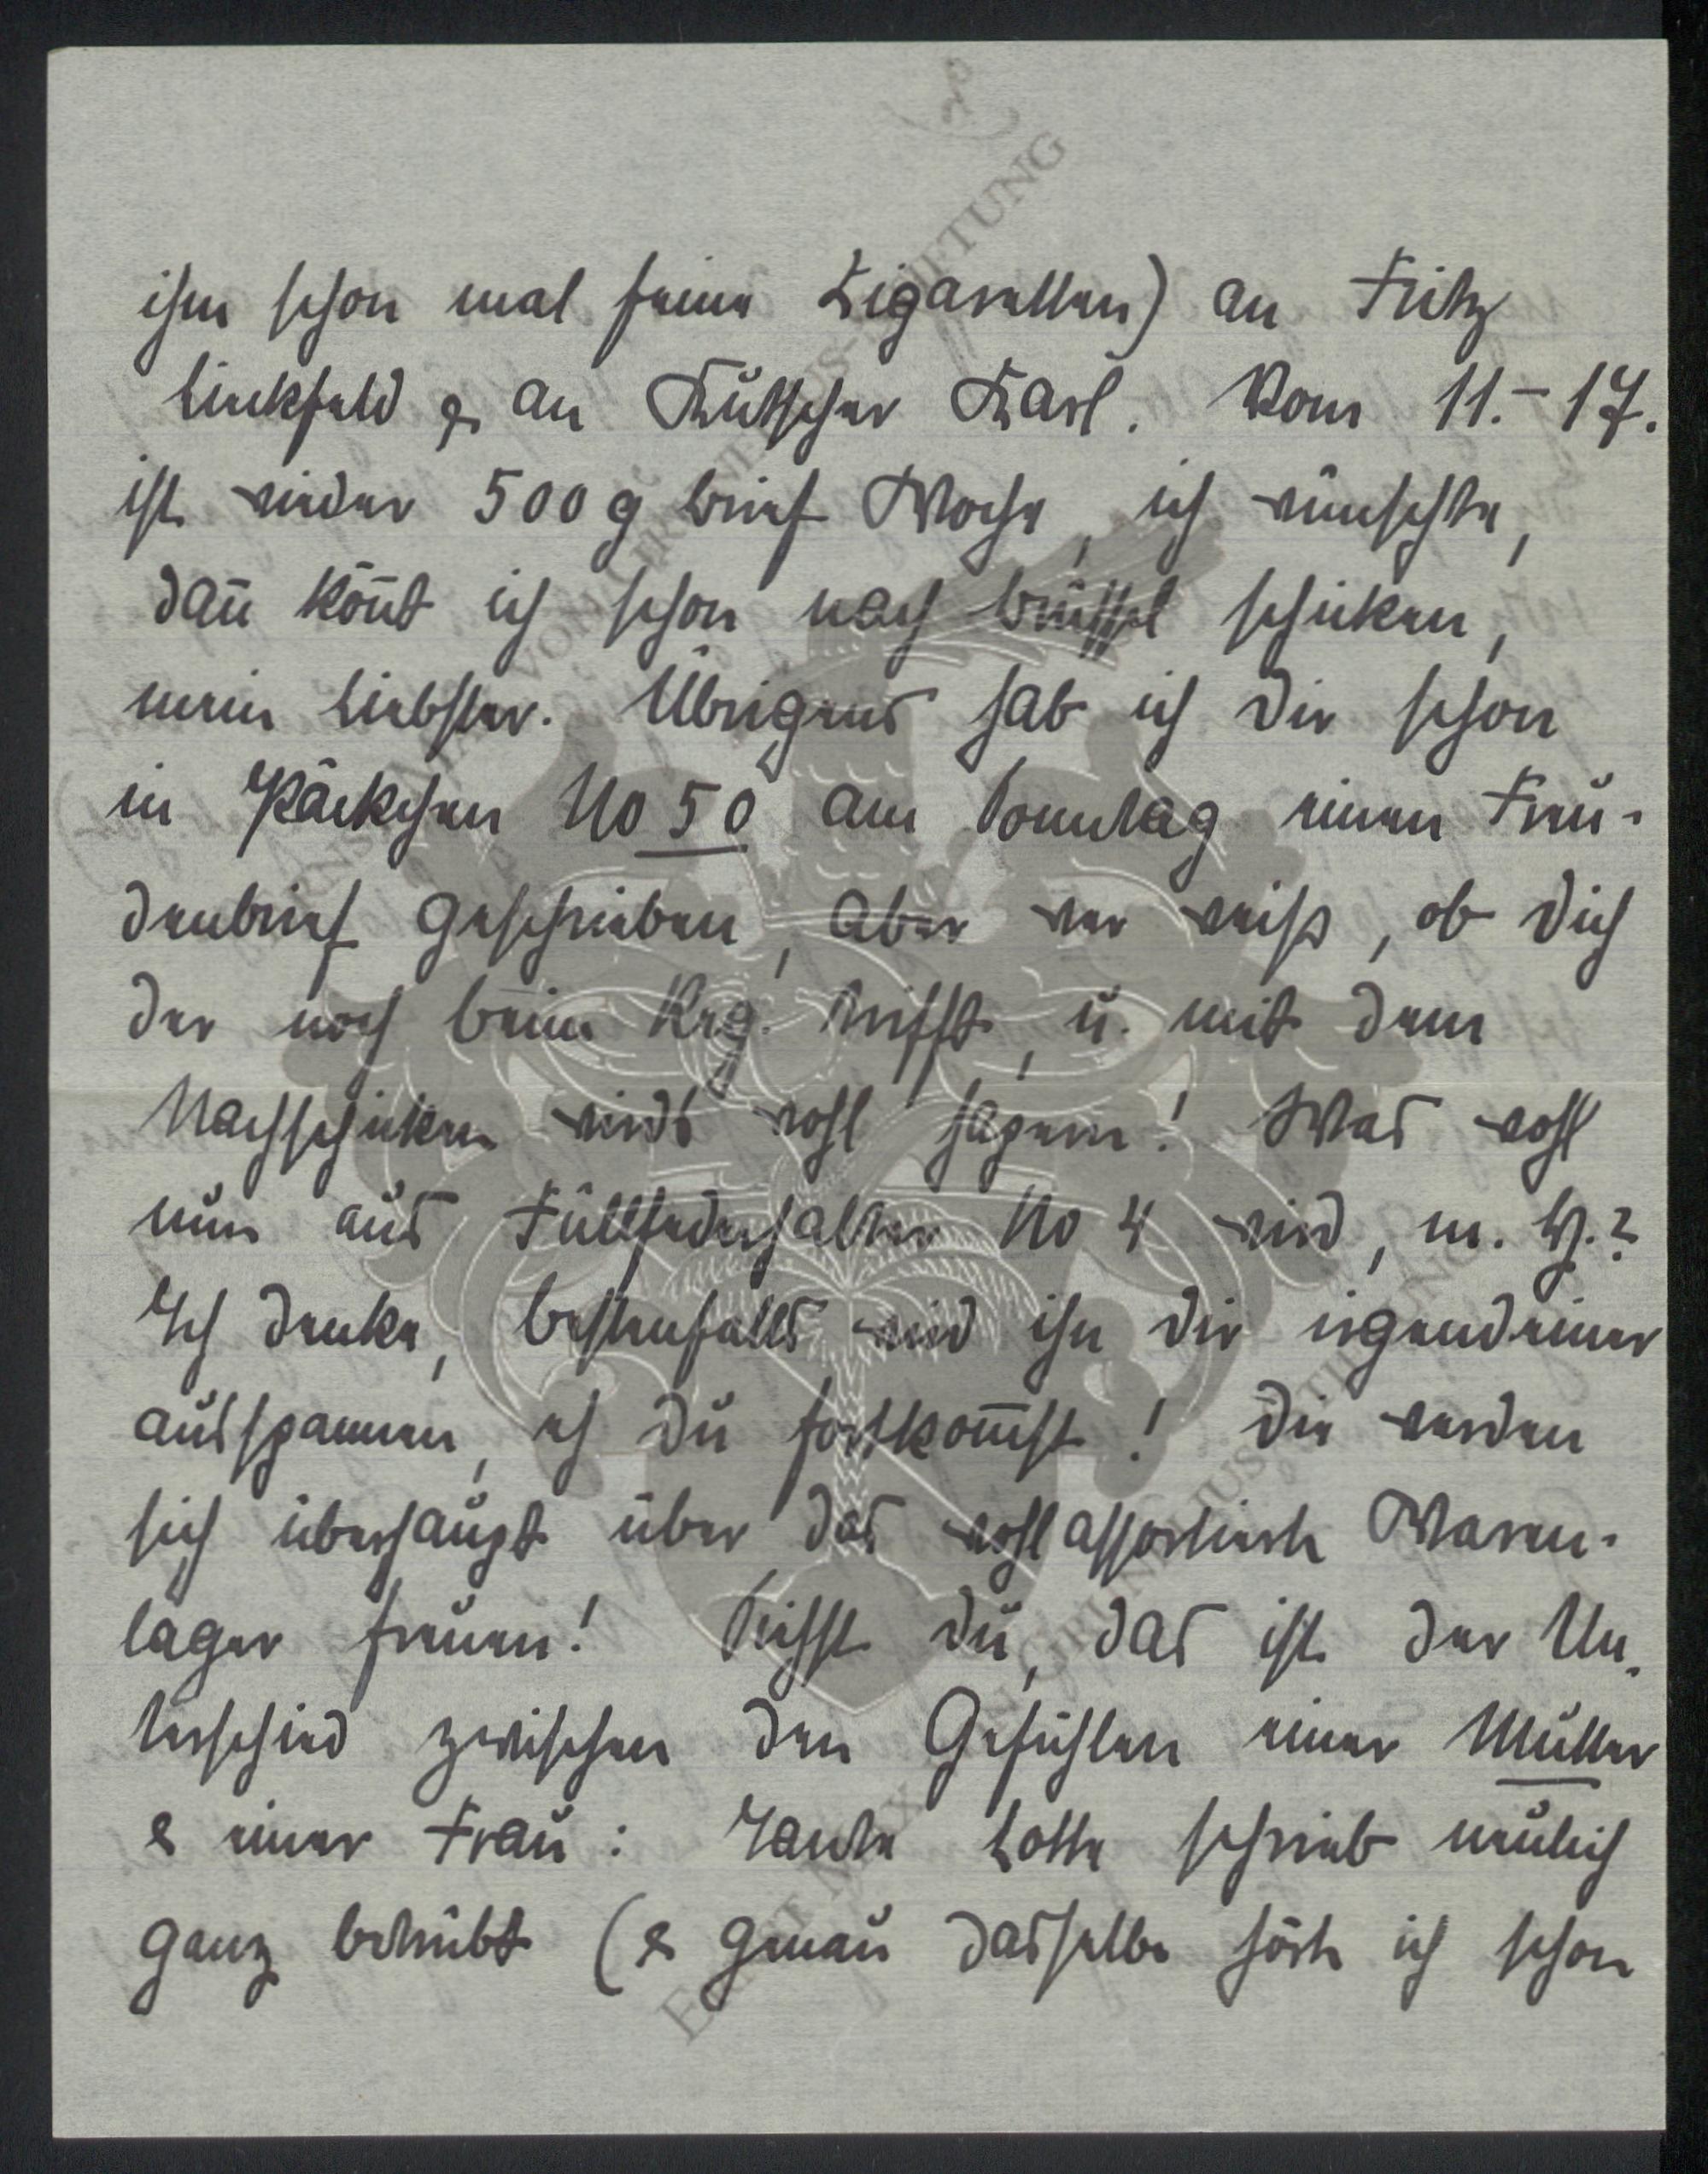 ihm schon mal feine Zigaretten) an Fritz
Linkfeld & an Kutscher Karl. Vom 11.-17.
ist wieder 500 g Brief Woche, ich wünschte,
dañ kön̄t ich schon nach Brüssel schicken,
mein Liebster. Übrigens hab ich Dir schon
in Päckchen No 50 am Sonntag einen Freu-
denbrief geschrieben, aber wer weiss, ob Dich
der noch beim Reg. trifft, u. mit dem
Nachschicken wirds wohl hapern! Was wohl
nun aus Füllfederhalter No 4 wird, m. H.?
Ich denke, bestenfalls wird ihn Dir irgendeiner
ausspannen, eh Du fortkom̄st! Die werden
sich überhaupt über das wohlassortierte Waren-
lager freuen! Siehst Du, das ist der Un-
terschied zwischen den Gefühlen einer Mutter
& einer Frau: Tante Lotte schrieb neulich
ganz betrübt (& genau dasselbe hörte ich schon
ERNST MAX VON GRUNELIUS-STIFTUNG
ERNST MAX VON GRUNELIUS-STIFTUNG